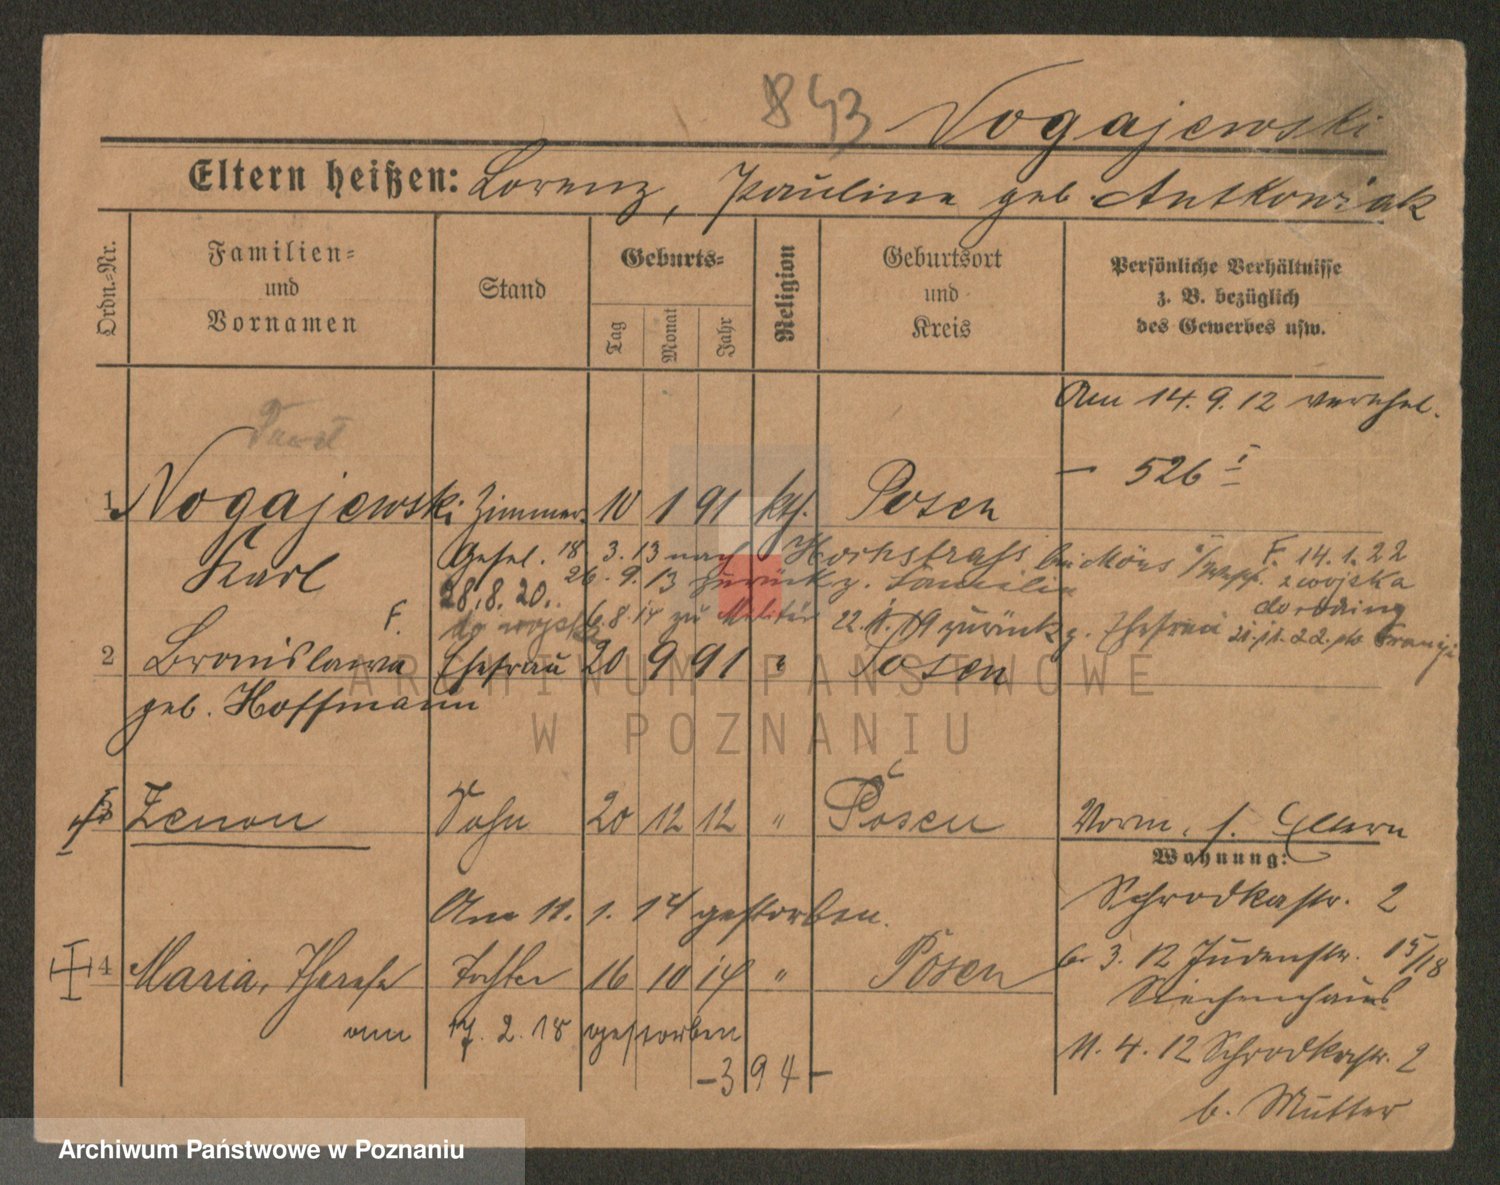 843 Nogajewski
Eltern heißen: Lorenz, Pauline geb. Antkowiak
Ordn.=Nr.
Familien=
und
Vornamen
Stand
Geburts=
Tag
Monat
Jahr
Religion
Geburtsort
und
Kreis
Persönliche Verhältnisse
z. B. bezüglich
des Gewerbes usw.
Am 14. 9. 12 verehel.
— 526 I
1 Nogajewski Zimmer- 10 1 91 kth. Posen
Karl Gesel. 18. 3. 13 nach Hochstrass bei Mörs F. 14. 1. 22
26. 9. 13 zurück z. Familie z wojska
28. 8. 20. 6. 8. 14 zu Militär 22. 1. 19 zurück z. Ehefrau
do wojska
21. 11. 22. do Francji
F.
2 Bronislawa Ehefrau 20 9 91 " Posen
geb. Hoffmann
3 Zenon Sohn 20 12 12 " Posen
Vorm. s. Eltern
Wohnung:
Am 11. 1. 14 gestorben.
Schrodkastr. 2
4 Maria, Therese Tochter 16 10 14 " Posen
6. 3. 12 Judenstr. 15/18
Siechenhaus
am 17. 2. 18 gestorben
11. 4. 12 Schrodkastr. 2
— 394 —
b. Mutter
ARCHIWUM PAŃSTWOWE
W POZNANIU
Archiwum Państwowe w Poznaniu